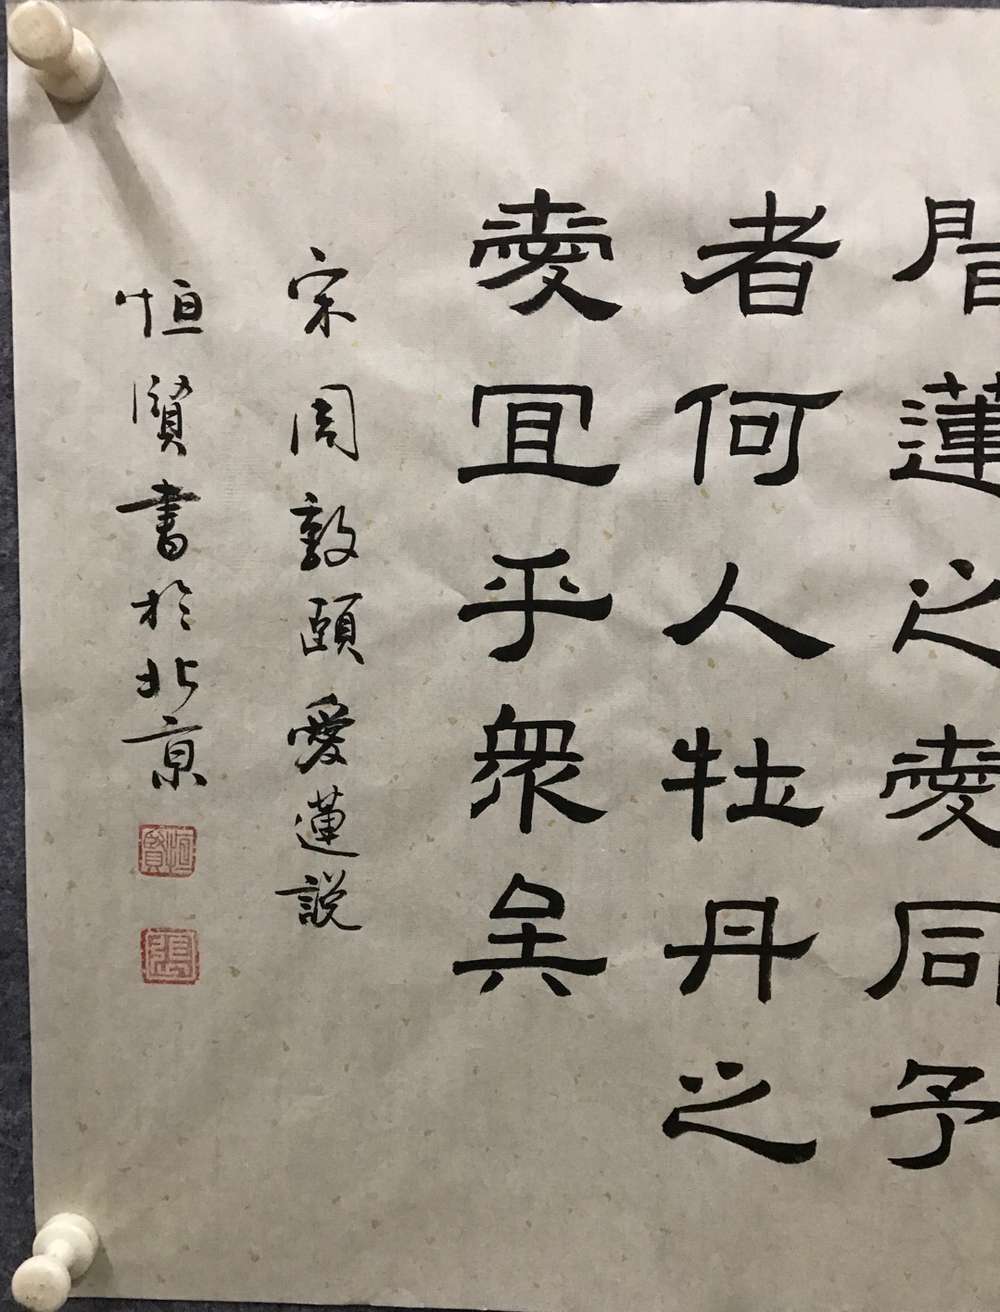 聞蓮之愛同予
者何人牡丹之
愛冝乎衆矣
宋周敦頤愛蓮説
恒賢書於北京
恒賢
張